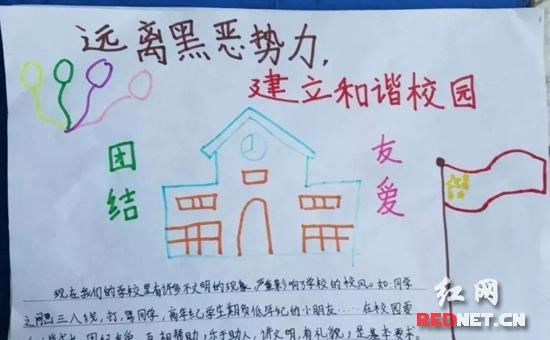 远离黑恶势力，
建立和谐校园
团结
友爱
现在我们的学校里有许多不文明的现象，严重影响了学校的校风。如：同学
之间三人线，打，骂同学，高年纪学生期负低年纪的小朋友……在校园要
团结友爱，互相帮助，乐于助人，讲文明，有礼貌，是基本要求。
红网
REDNET.CN